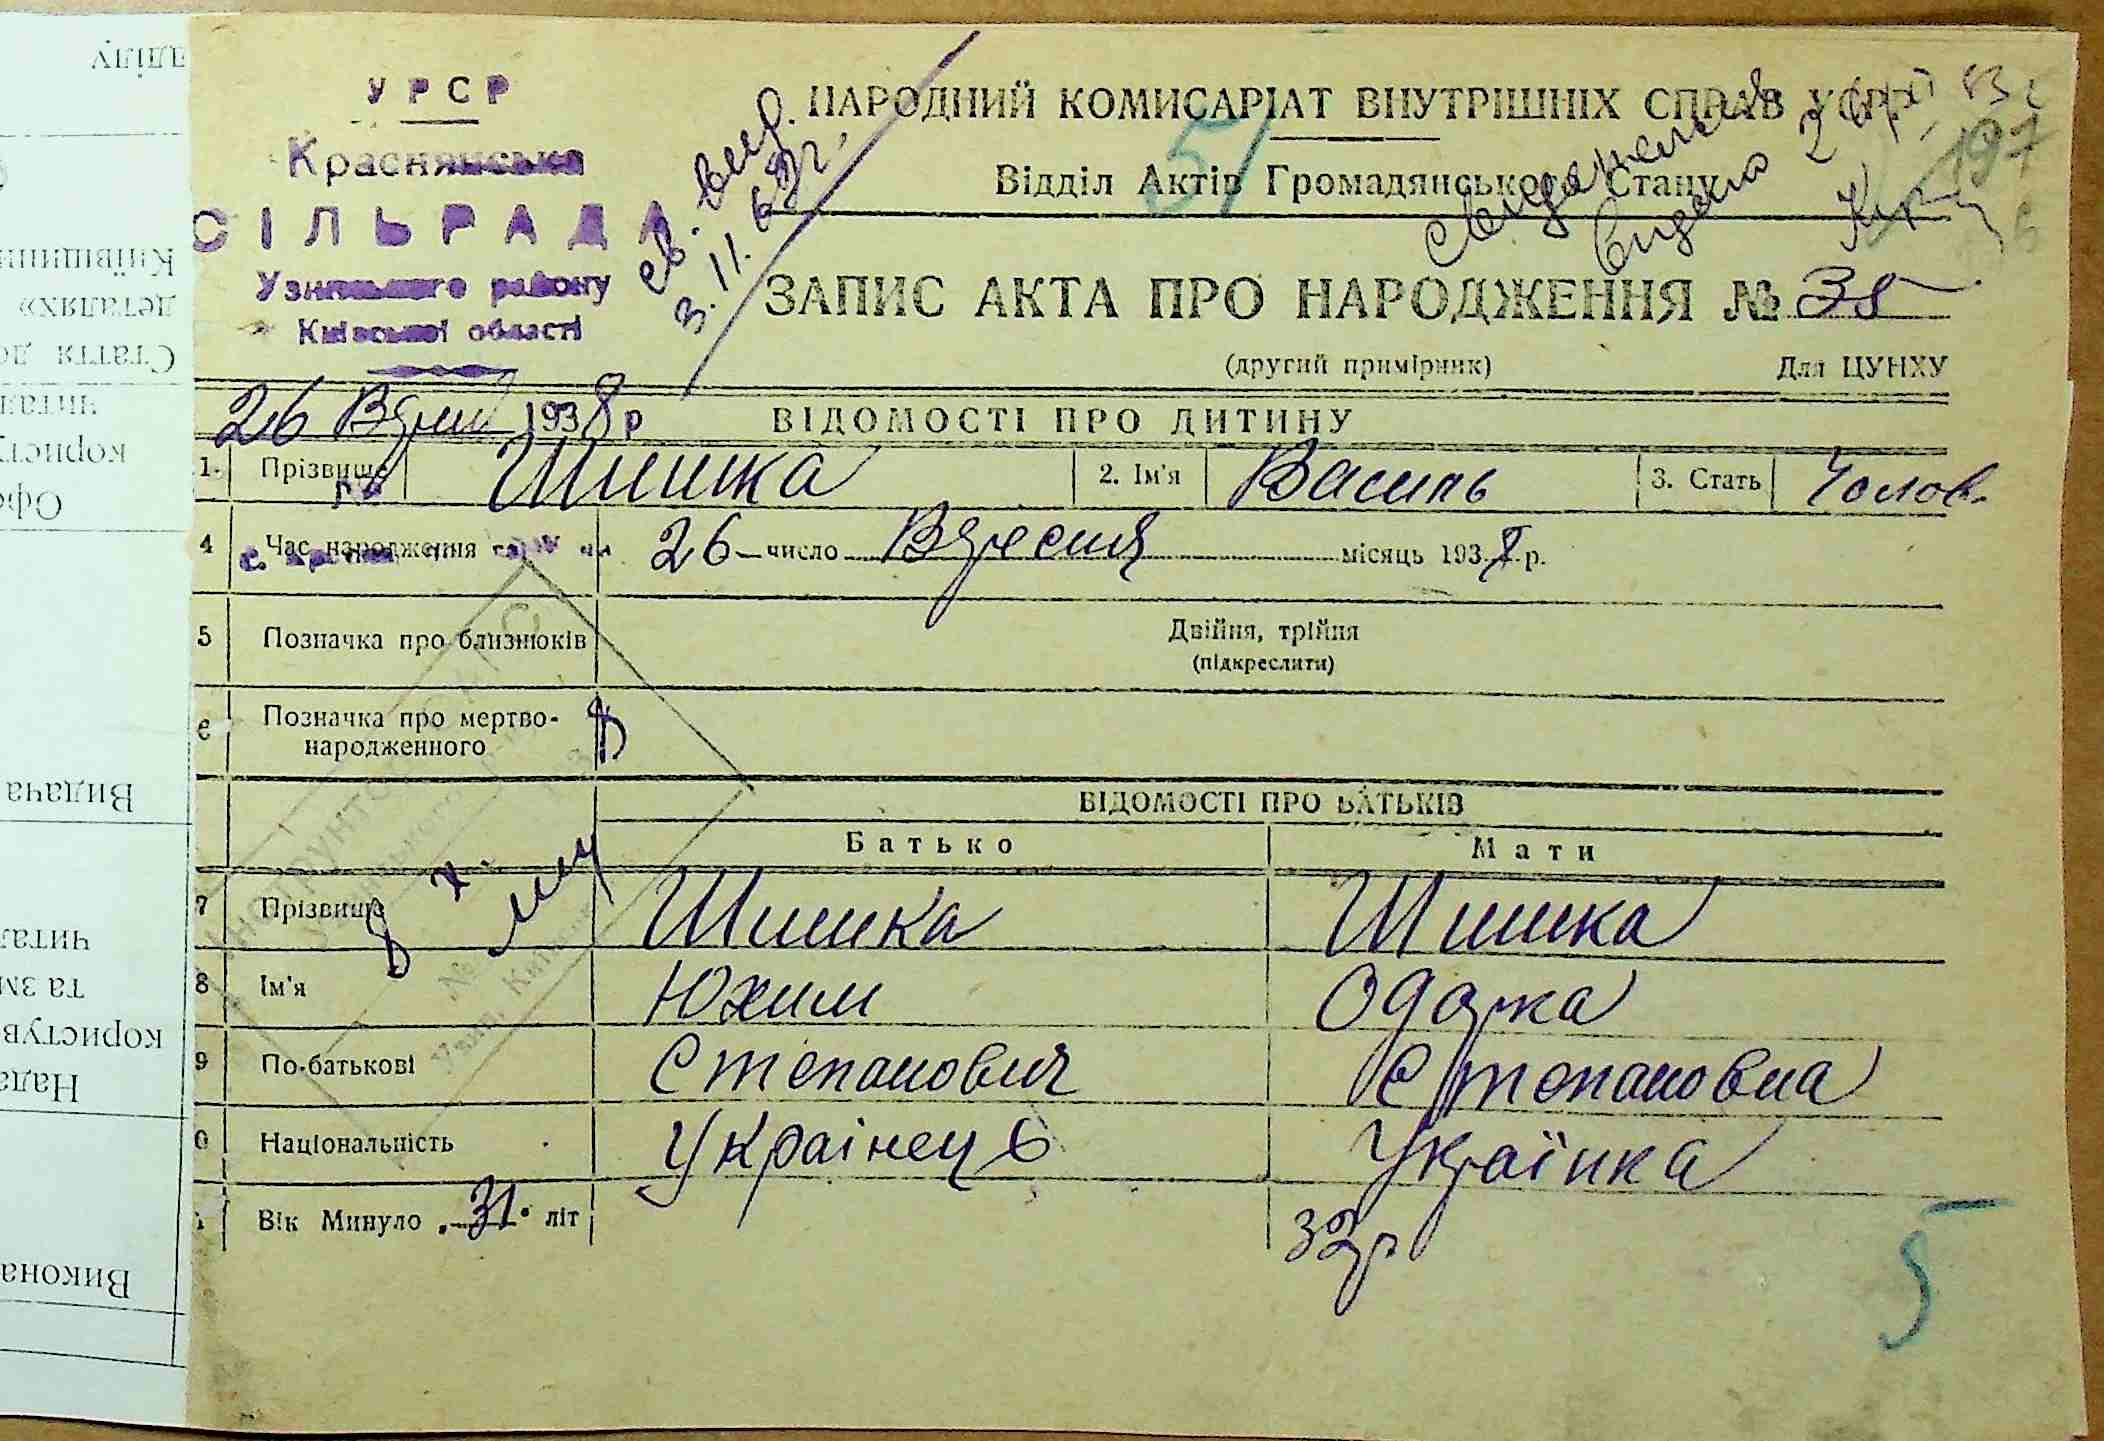 УРСР
Краснянська
СІЛЬРАДА
Узинського району
Київської області
св. выд.
3.11.
НАРОДНИЙ КОМИСАРІАТ ВНУТРІШНІХ СПРАВ УСРР
51
Відділ Актів Громадянського Стану
197
ЗАПИС АКТА ПРО НАРОДЖЕННЯ № 38
(другий примірник)
Для ЦУНХУ
26 Вересня 1938 р
ВІДОМОСТІ ПРО ДИТИНУ
1. Прізвище Шишка 2. Ім'я Василь 3. Стать Чолов.
4 Час народження 26 число Вересня місяць 1938 р.
5 Позначка про близнюків Двійня, трійня
(підкреслити)
6 Позначка про мертво-
народженного
ВІДОМОСТІ ПРО БАТЬКІВ
Батько Мати
7 Прізвище Шишка Шишка
8 Ім'я Юхим Одарка
9 По-батькові Степанович Степановна
0 Національність Українець Українка
Вік Минуло 31 літ 32 р
5
ділу
Київщини
деталях»
Стаття до
читал
користу
Офо
Видача
читал
та зм
користув
Нада
Викона